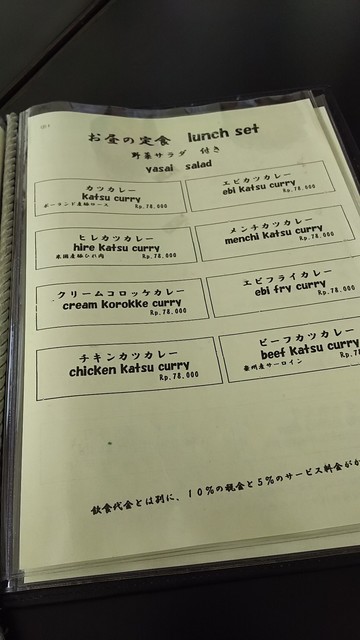 お昼の定食 lunch set
野菜サラダ 付き
yasai salad
カツカレー
katsu curry
ポーランド産豚ロース Rp.78.000
エビカツカレー
ebi katsu curry
Rp.78.000
ヒレカツカレー
hire katsu curry
米国産豚ひれ肉 Rp.78.000
メンチカツカレー
menchi katsu curry
Rp.78.000
クリームコロッケカレー
cream korokke curry
Rp.78.000
エビフライカレー
ebi fry curry
Rp.78.000
チキンカツカレー
chicken katsu curry
Rp.78.000
ビーフカツカレー
beef katsu curry
豪州産サーロイン Rp.7
飲食代金とは別に、10%の税金と5%のサービス料金が